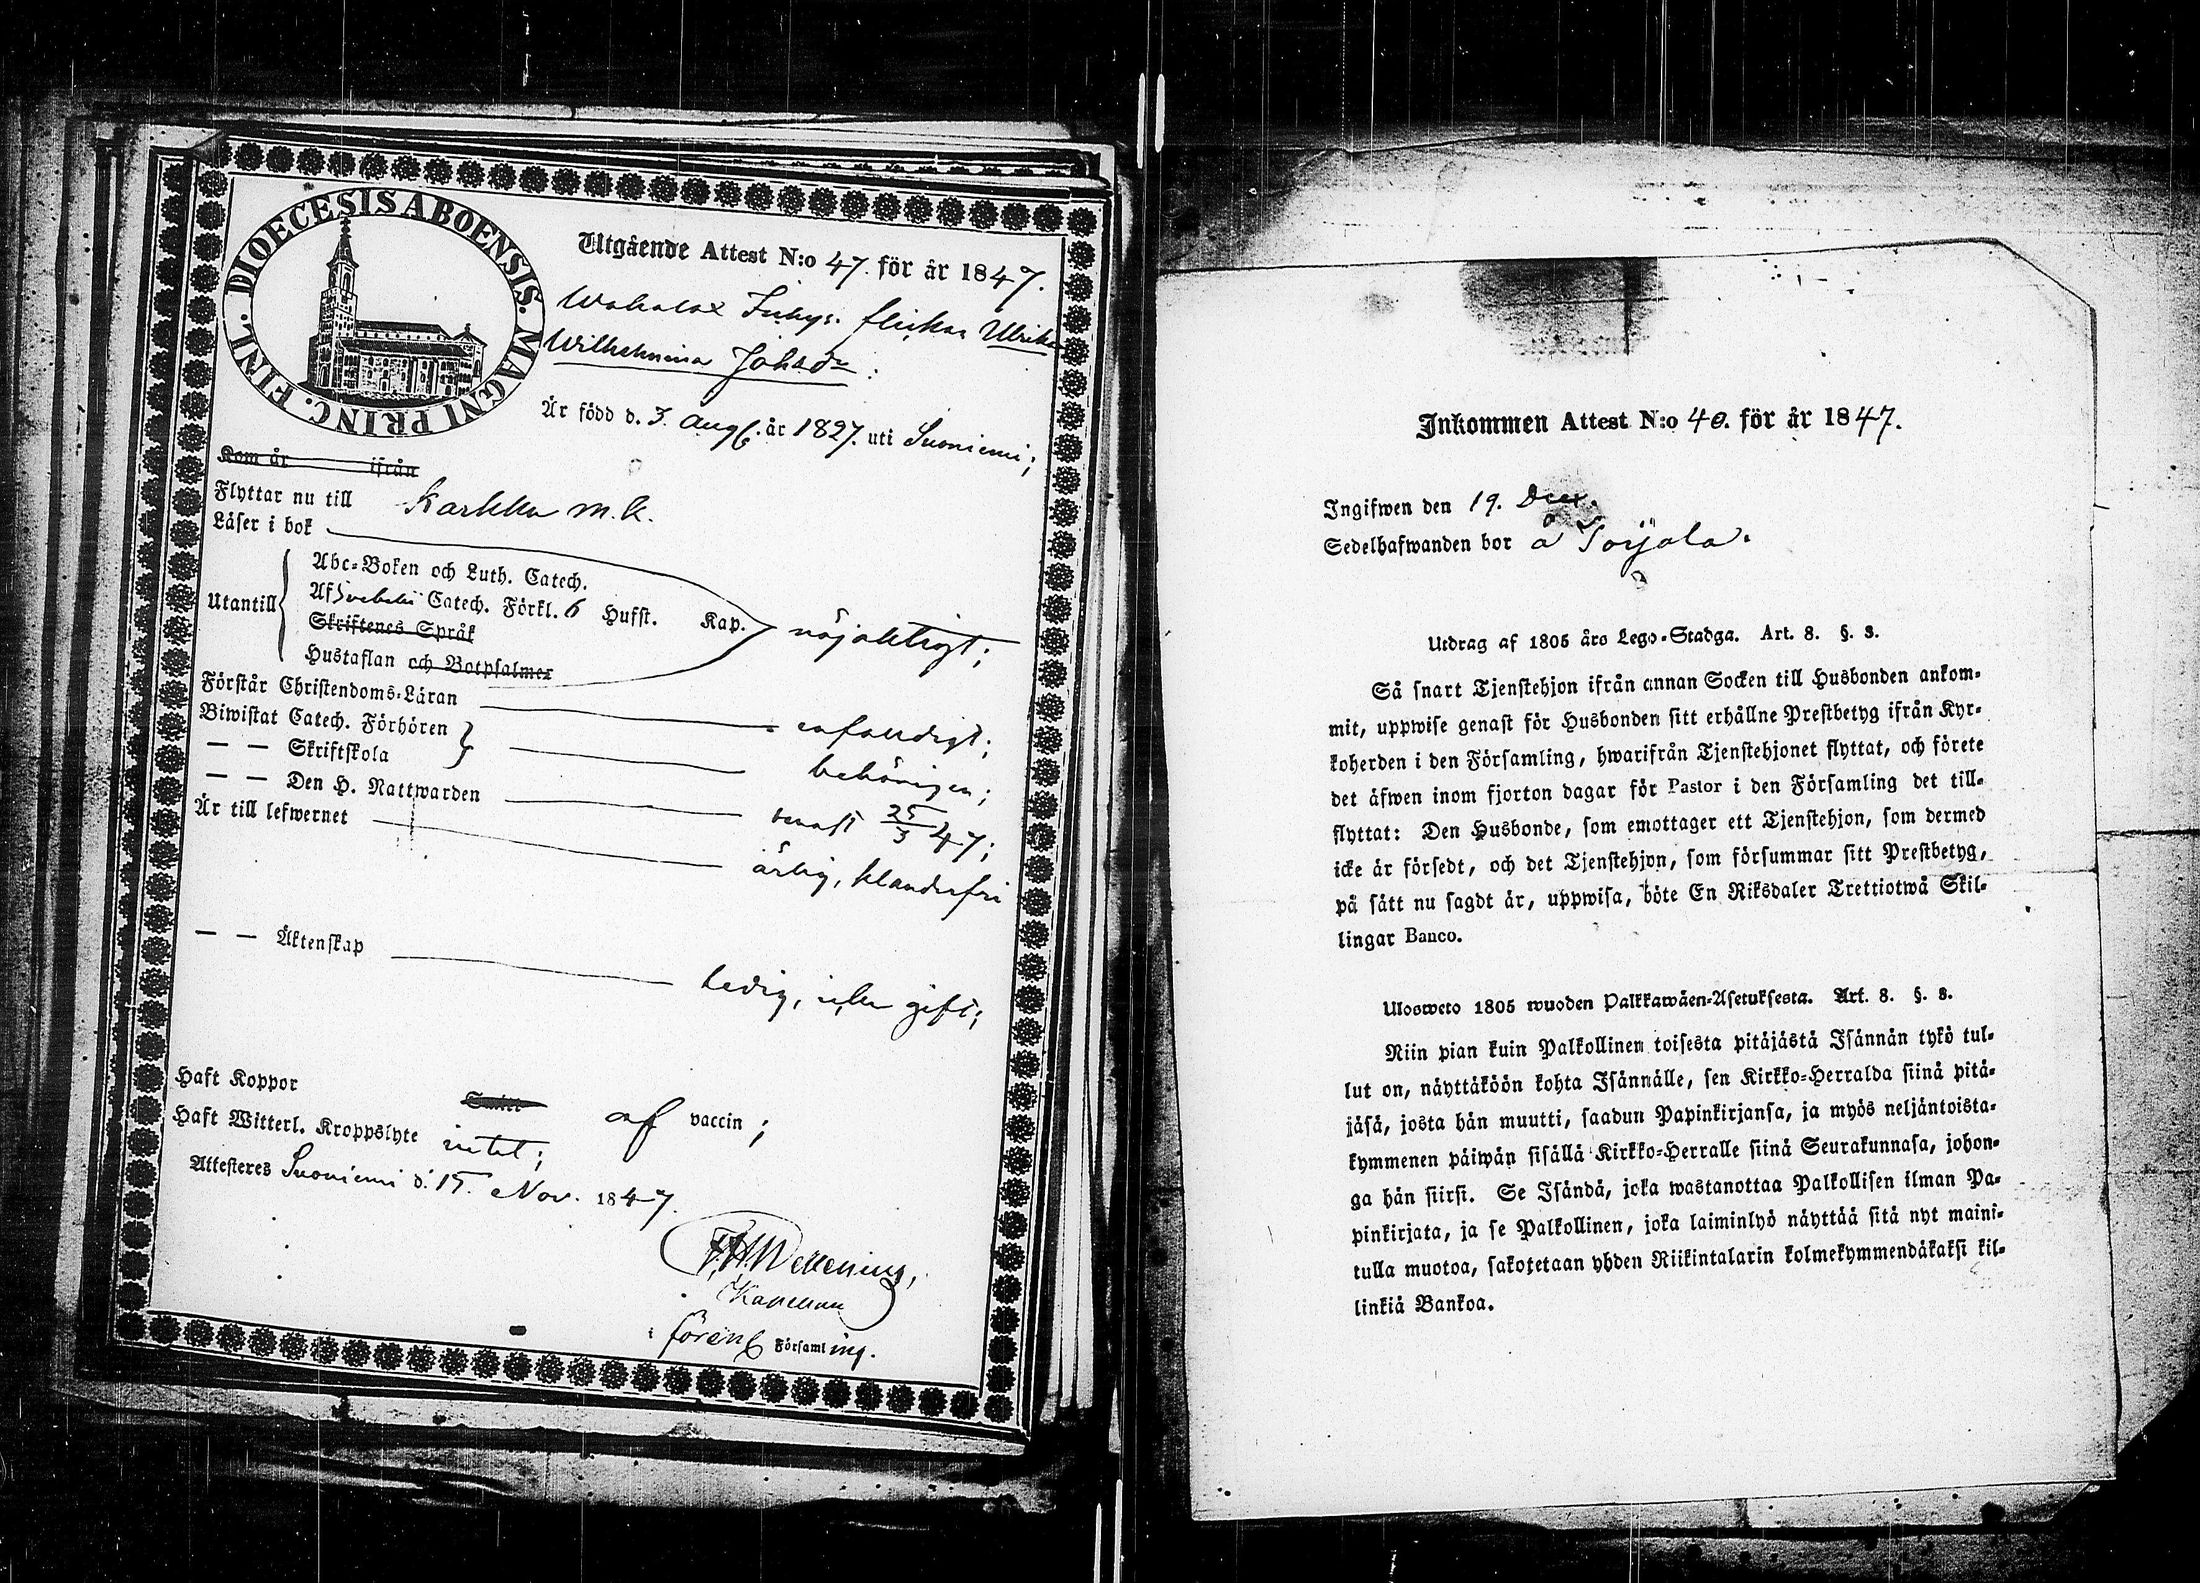 DIOECESIS ABOENSIS. MAGNI PRINC. FINL.
Utgående Attest N:o 47. för år 1847.
flickan Ulrika
Wilhelmina Johad:r
Är född d. 3. Aug. år 1827. uti Suoniemi;
Kom år ifrån
Flyttar nu till Karkku m.k.
Läser i bok
Utantill
Abc-Boken och Luth. Catech.
Af Svebelii Catech. Förkl. 6 Hufst. Kap. nöjaktigt;
Skriftenes Språk
Hustaflan och Botpsalmer
Förstår Christendoms-Läran enfaldigt;
Biwistat Catech. Förhören
— — Skriftskola behörigen;
— — Den H. Nattwarden senast 25/3 47;
Är till lefwernet ärlig, klanderfri
— — Äktenskap ledig, icke gift;
Haft Koppor af vaccin;
Haft Witterl. Kroppslyte intet;
Attesteres Suoniemi d. 15. Nov. 1847.
Kapellan
i fören. Församling.
Inkommen Attest N:o 40. för år 1847.
Ingifwen den 19. Dec.
Sedelhafwanden bor å
Utdrag af 1805 års Lego-Stadga. Art. 8. §. 3.
Så snart Tjenstehjon ifrån annan Socken till Husbonden ankom-
mit, uppwise genast för Husbonden sitt erhållne Prestbetyg ifrån Kyr-
koherden i den Församling, hwarifrån Tjenstehjonet flyttat, och förete
det äfwen inom fjorton dagar för Pastor i den Församling det till-
flyttat: Den Husbonde, som emottager ett Tjenstehjon, som dermed
icke är försedt, och det Tjenstehjon, som försummar sitt Prestbetyg,
på sätt nu sagdt är, uppwisa, böte En Riksdaler Trettiotwå Skil-
lingar Banco.
Ulosweto 1805 wuoden Palkkawäen-Asetuksesta. Art. 8. §. 3.
Niin pian kuin Palkollinen toisesta pitäjästä Isännän tykö tul-
lut on, näyttäköön kohta Isännälle, sen Kirkko-Herralda siinä pitä-
jäsä, josta hän muutti, saadun Papinkirjansa, ja myös neljäntoista-
kymmenen päiwän sisällä Kirkko-Herralle siinä Seurakunnasa, johon-
ga hän siirsi. Se Isändä, joka wastanottaa Palkollisen ilman Pa-
pinkirjata, ja se Palkollinen, joka laiminlyö näyttää sitä nyt maini-
tulla muotoa, sakotetaan yhden Riikintalarin kolmekymmendäkaksi kil-
linkiä Bankoa.